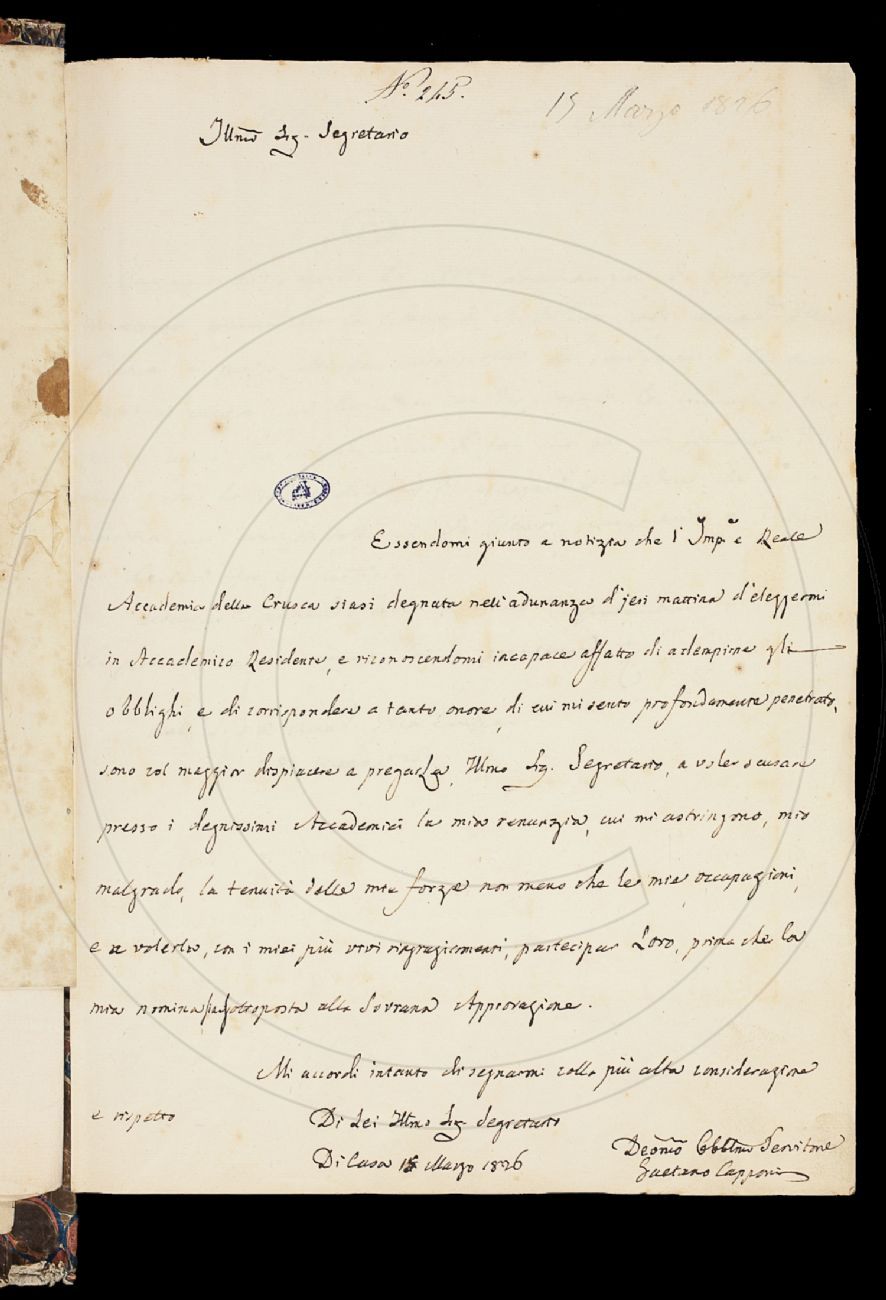 N.º 245.
15 Marzo 1826
Illmo Sig. Segretario
Essendomi giunto a notizia che l' Imp.e e Reale
Accademia della Crusca siasi degnata nell'adunanza d'jeri mattina d'eleggermi
in Accademico Residente, e riconoscendomi incapace affatto di adempire gli
obblighi, e di corrispondere a tanto onore, di cui mi sento profondamente penetrato,
sono col maggior dispiacere a pregarLa, Illmo Sig. Segretario, a voler scusare
presso i degnissimi Accademici la mia renunzia, cui mi astringono, mio
malgrado, la tenuità delle mie forze non meno che le mie occupazioni,
e a volerla, con i miei più vivi ringraziamenti, partecipar Loro, prima che la
mia nomina sia sottoposta alla Sovrana Approvazione.
Mi accordi intanto di segnarmi colla più alta considerazione
e rispetto
Di Lei Illmo Sig. Segretario
Di Casa 15 Marzo 1826
Devmo Obblmo Servitore
Gaetano Capponi